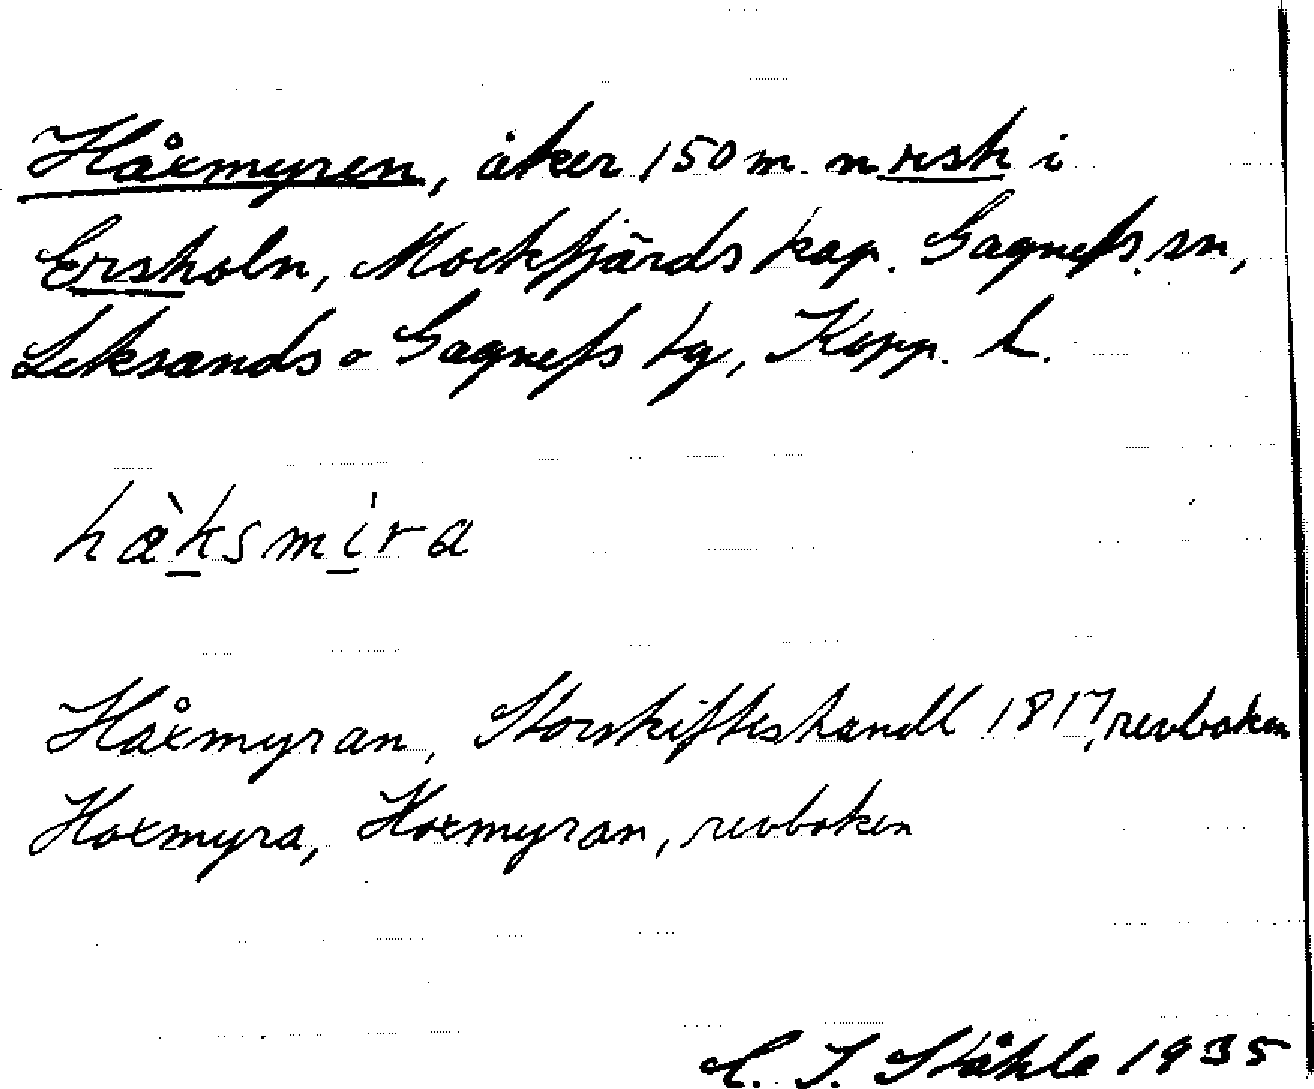 Håxmyren, åker 150 m. n rsh i
Ersholn, Mockfjärds kap. Gagnefs sn,
Leksands o Gagnefs tg, Kopp. l.
hàksmíra
Håxmyran, Storskifteshandl 1817, revboken
Hoxmyra, Hoxmyran, revboken
C. I. Ståhle 1935